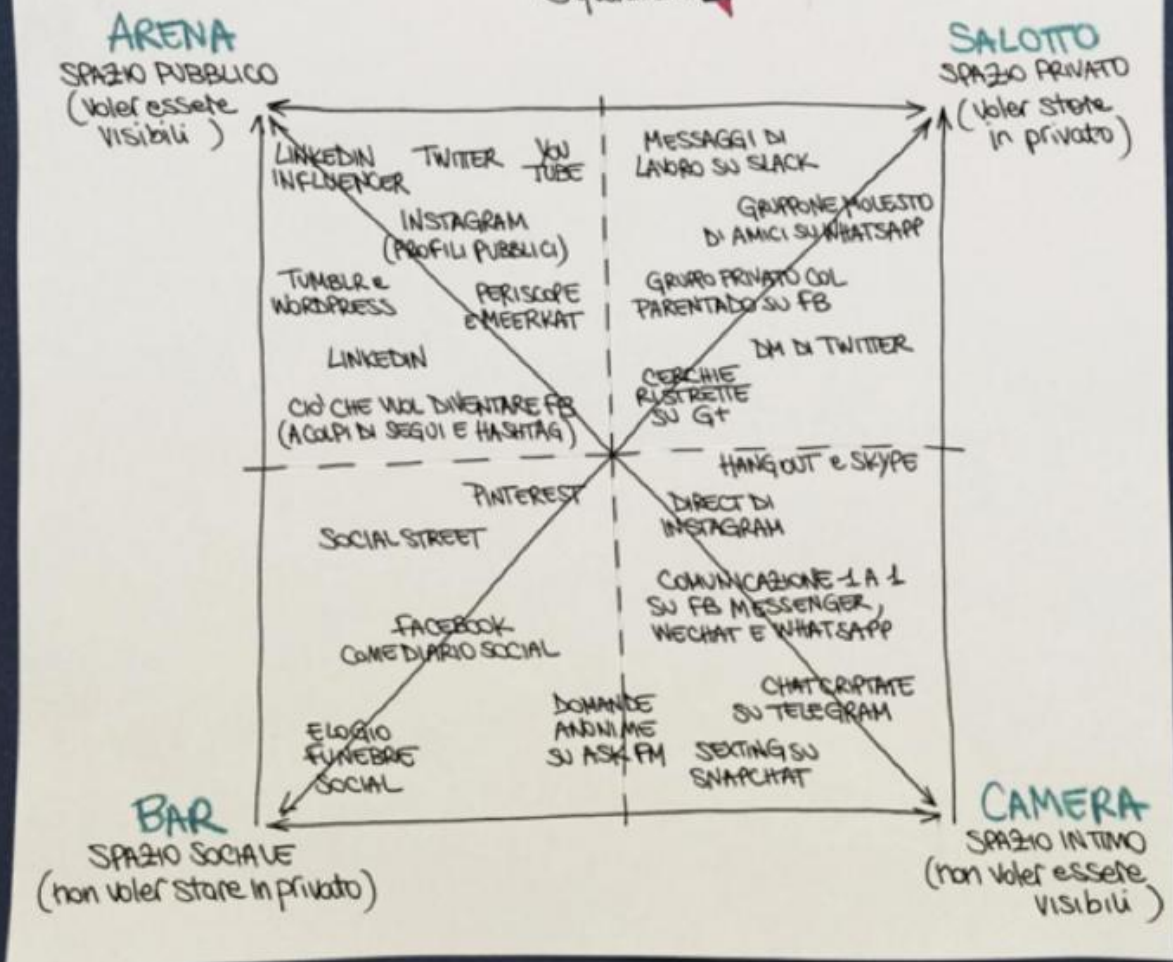 ARENA
SPAZIO PUBBLICO
(voler essere
visibili)
SALOTTO
SPAZIO PRIVATO
(voler stare
in privato)
LINKEDIN
INFLUENCER
TWITTER
YOU
TUBE
INSTAGRAM
(PROFILI PUBBLICI)
TUMBLR e
WORDPRESS
PERISCOPE
E MEERKAT
LINKEDIN
CIÒ CHE VUOL DIVENTARE FB
(A COLPI DI SEGUI E HASHTAG)
MESSAGGI DI
LAVORO SU SLACK
GRUPPONE MOLESTO
DI AMICI SU WHATSAPP
GRUPPO PRIVATO COL
PARENTADO SU FB
DM DI TWITTER
CERCHIE
RISTRETTE
SU G+
PINTEREST
SOCIAL STREET
FACEBOOK
COME DIARIO SOCIAL
ELOGIO
FUNEBRE
SOCIAL
DOMANDE
ANONIME
SU ASK FM
HANGOUT e SKYPE
DIRECT DI
INSTAGRAM
COMUNICAZIONE 1 A 1
SU FB MESSENGER,
WECHAT E WHATSAPP
CHAT CRIPTATE
SU TELEGRAM
SEXTING SU
SNAPCHAT
BAR
SPAZIO SOCIALE
(non voler stare in privato)
CAMERA
SPAZIO INTIMO
(non voler essere
visibili)